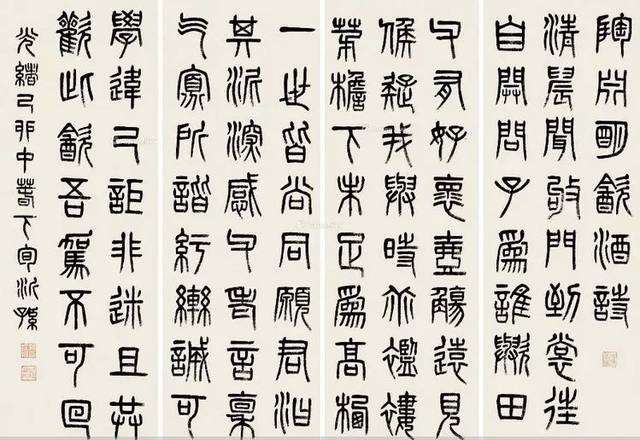 陶淵明飲酒詩
清晨聞敂門到裳往
自開問子為誰與田
父有好懷壺觴遠見
候疑我與時乖襤褸
茅檐下未足為高栖
一世皆尚同願君汩
其泥深感父老言稟
气寡所諧紆轡誠可
學違己詎非迷且共
歡此飲吾駕不可回
光緒己卯中春下旬沂孫